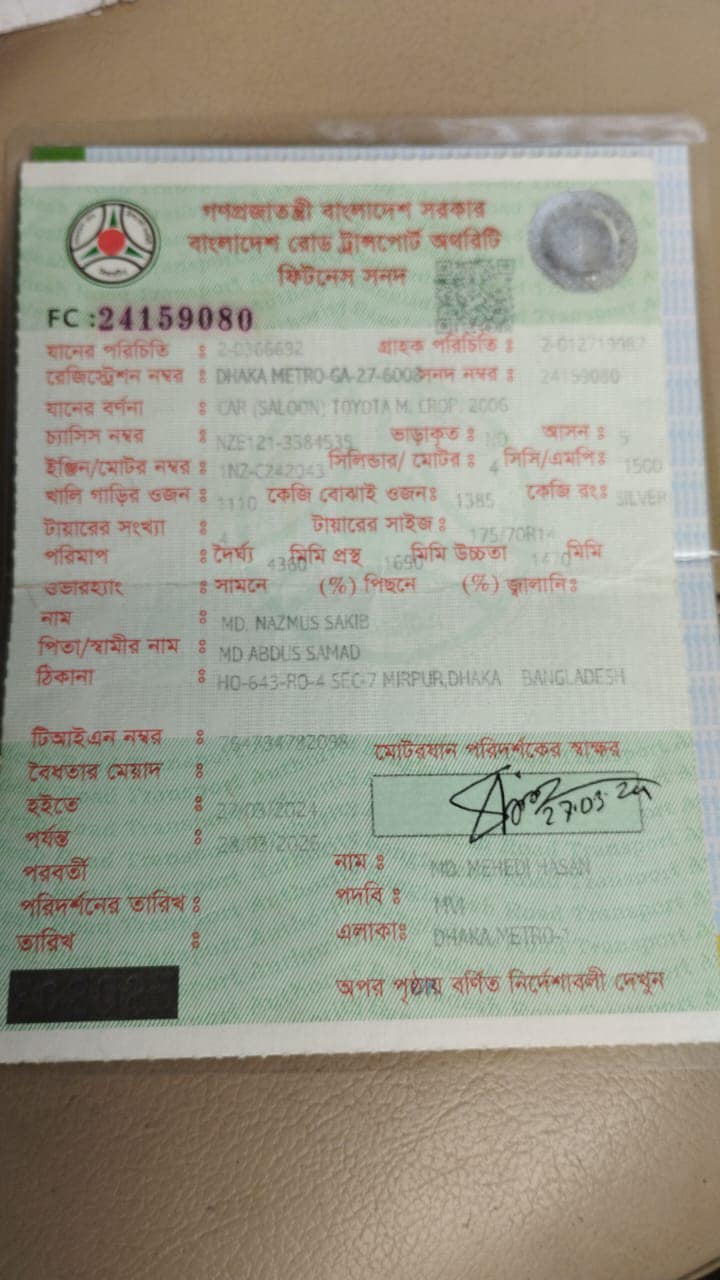 গণপ্রজাতন্ত্রী বাংলাদেশ সরকার
বাংলাদেশ রোড ট্রান্সপোর্ট অথরিটি
ফিটনেস সনদ
FC :24159080
যানের পরিচিতি : 2-0366692 গ্রাহক পরিচিতি :
রেজিস্ট্রেশন নম্বর : DHAKA METRO-GA-27-6003 সনদ নম্বর : 24159080
যানের বর্ণনা : CAR (SALOON) TOYOTA M. CROP. 2006
চ্যাসিস নম্বর : NZE121-3384535 ভাড়াকৃত : NO আসন : 5
ইঞ্জিন/মোটর নম্বর : 1NZ-C242043 সিলিন্ডার/ মোটর : 4 সিসি/এমপি: 1500
খালি গাড়ির ওজন : 1110 কেজি বোঝাই ওজন: 1385 কেজি রং: SILVER
টায়ারের সংখ্যা : 4 টায়ারের সাইজ : 175/70R14
পরিমাপ : দৈর্ঘ্য 4360 মিমি প্রস্থ 1690 মিমি উচ্চতা 1470 মিমি
ওভারহ্যাং : সামনে (%) পিছনে (%) জ্বালানি:
নাম : MD. NAZMUS SAKIB
পিতা/স্বামীর নাম : MD ABDUS SAMAD
ঠিকানা : HO-643-RO-4 SEC-7 MIRPUR,DHAKA BANGLADESH
টিআইএন নম্বর :
মোটরযান পরিদর্শকের স্বাক্ষর
বৈধতার মেয়াদ :
হইতে : 27/03/2024
27.03.24
পর্যন্ত : 28/03/2026
পরবর্তী
পরিদর্শনের তারিখ :
তারিখ :
নাম : MD. MEHEDI HASAN
পদবি : MVI
এলাকা: DHAKA METRO-
অপর পৃষ্ঠায় বর্ণিত নির্দেশাবলী দেখুন